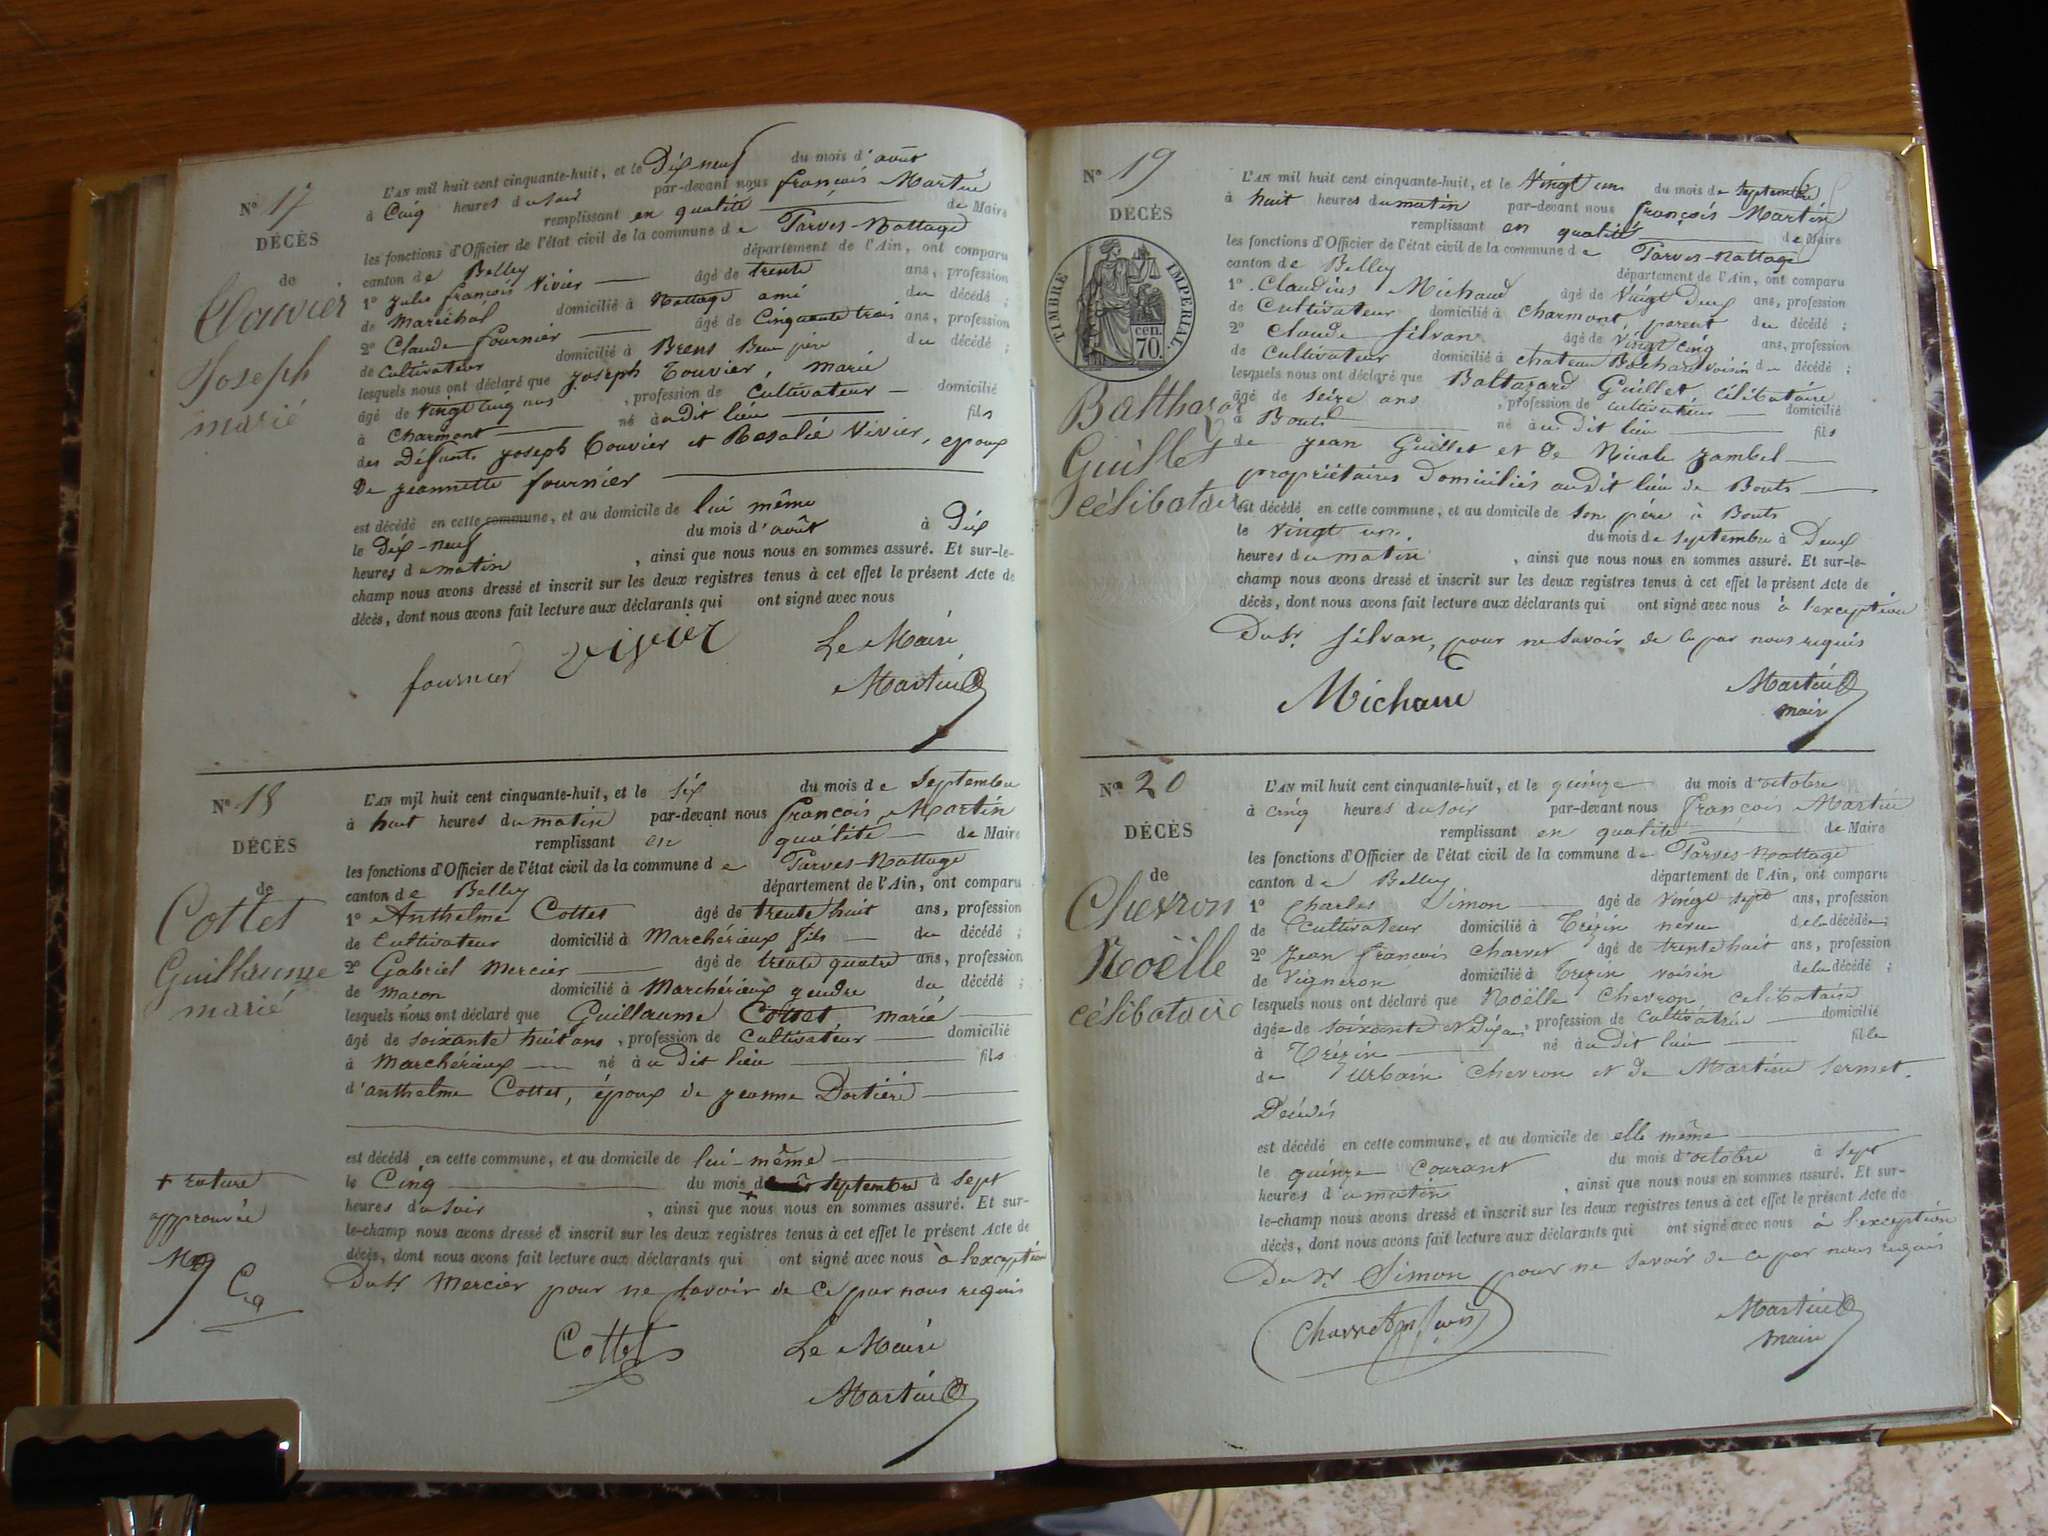 N° 17
DÉCÈS
de
Touvier
Joseph
marié
L'AN mil huit cent cinquante-huit, et le Dix neuf du mois d'août
à Cinq heures du soir par-devant nous françois Martin
remplissant en qualité de Maire
les fonctions d'Officier de l'état civil de la commune de Parves-Nattage
canton de Belley département de l'Ain, ont comparu
1° Jules françois Vivier âgé de trente ans, profession
de Maréchal domicilié à Nattage ami du décédé ;
2° Claude fournier âgé de Cinquante trois ans, profession
de Cultivateur domicilié à Brens Beau père du décédé ;
lesquels nous ont déclaré que Joseph Touvier, marié
âgé de vingt cinq ans , profession de Cultivateur domicilié
à Charmont né audit lieu fils
des Défunts Joseph Touvier et Rosalie Vivier, époux
De Jeannette fournier
est décédé en cette commune, et au domicile de lui même
le Dix-neuf du mois d'août à Dix
heures du matin , ainsi que nous nous en sommes assuré. Et sur-le-
champ nous avons dressé et inscrit sur les deux registres tenus à cet effet le présent Acte de
décès, dont nous avons fait lecture aux déclarants qui ont signé avec nous
fournier vivier Le Maire
Martin
N° 18
DÉCÈS
de
Cottet
Guilhaume
marié
L'AN mil huit cent cinquante-huit, et le six du mois de Septembre
à huit heures du matin par-devant nous françois Martin
remplissant en qualité de Maire
les fonctions d'Officier de l'état civil de la commune de Parves-Nattage
canton de Belley département de l'Ain, ont comparu
1° Anthelme Cottet âgé de trente huit ans, profession
de Cultivateur domicilié à Marchérieux fils du décédé ;
2° Gabriel Mercier âgé de trente quatre ans, profession
de Macon domicilié à Marchérieux gendre du décédé ;
lesquels nous ont déclaré que Guillaume Cottet marié
âgé de soixante huit ans , profession de Cultivateur domicilié
à Marchérieux né audit lieu fils
d'anthelme Cottet, époux de Jeanne Dortière
est décédé en cette commune, et au domicile de lui-même
le Cinq du mois de septembre à sept
heures du soir , ainsi que nous nous en sommes assuré. Et sur-
le-champ nous avons dressé et inscrit sur les deux registres tenus à cet effet le présent Acte de
décès, dont nous avons fait lecture aux déclarants qui ont signé avec nous à l'exception
Du Sr Mercier pour ne savoir de ce par nous requis
+ rature
approuvée
Cottet Le Maire
Martin
N° 19
DÉCÈS
TIMBRE IMPERIAL
cen.
70.
Balthazar
Guillet
célibataire
L'AN mil huit cent cinquante-huit, et le Vingt un du mois de septembre
à huit heures du matin par-devant nous françois Martin
remplissant en qualité de Maire
les fonctions d'Officier de l'état civil de la commune de Parves-Nattage
canton de Belley département de l'Ain, ont comparu
1° Claudius Michaud âgé de Vingt Deux ans, profession
de Cultivateur domicilié à Charmont, parent du décédé ;
2° Claude Silvan âgé de Vingt cinq ans, profession
de Cultivateur domicilié à chateau Bochard voisin du décédé ;
lesquels nous ont déclaré que Baltazard Guillet célibataire
âgé de seize ans , profession de cultivateur domicilié
à Bouts né audit lieu fils
de Jean Guillet et de Nicole Jambel
propriétaires domiciliés audit lieu de Bouts
est décédé en cette commune, et au domicile de son père à Bouts
le vingt un. du mois de septembre à Deux
heures du matin , ainsi que nous nous en sommes assuré. Et sur-le-
champ nous avons dressé et inscrit sur les deux registres tenus à cet effet le présent Acte de
décès, dont nous avons fait lecture aux déclarants qui ont signé avec nous à l'exception
Du Sr. Silvan, pour ne savoir de ce par nous requis
Michaud Martin
maire
N° 20
DÉCÈS
de
Chevron
Noëlle
célibataire
L'AN mil huit cent cinquante-huit, et le quinze du mois d'octobre
à cinq heures du soir par-devant nous françois Martin
remplissant en qualité de Maire
les fonctions d'Officier de l'état civil de la commune de Parves-Nattage
canton de Belley département de l'Ain, ont comparu
1° Charles Simon âgé de vingt sept ans, profession
de Cultivateur domicilié à Trézin neveu de la décédée ;
2° Jean francois Charvet âgé de trente huit ans, profession
de Vigneron domicilié à Trezin voisin de la décédé ;
lesquels nous ont déclaré que Noëlle Chevron, celibataire
âgée de soixante et Dix ans , profession de Cultivatrice domicilié
à Trézin né audit lieu fille
de Urbain Chevron et de Martine Sermet.
Décédés
est décédé en cette commune, et au domicile de elle même
le quinze Courant du mois d'octobre à sept
heures du matin , ainsi que nous nous en sommes assuré. Et sur-
le-champ nous avons dressé et inscrit sur les deux registres tenus à cet effet le présent Acte de
décès, dont nous avons fait lecture aux déclarants qui ont signé avec nous à l'exception
Du Sr Simon pour ne savoir de ce par nous requis
Martin
maire